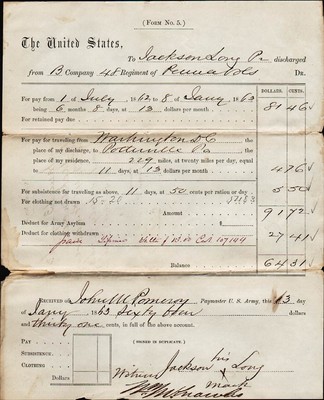 (FORM No. 5.)
The United States,
To Jackson Long Pr discharged
from B Company 48 Regiment of Penna Vols DR.
DOLLARS. CENTS.
For pay from 1 of July 1862 to 8 of Jany 1863
being 6 months 8 days, at 13 dollars per month 81 46
For retained pay due
For pay for travelling from Washington DC
the place of my discharge, to Pottsville Pa
place of my residence, 229 miles, at twenty miles per day, equal
to 11 days, at 13 dollars per month, 4 76
For subsistence for travelling as above, 11 days, at 50 cents per ration or day 5 50
For clothing not drawn
Amount 91 72
Deduct for Army Asylum
Deduct for clothing withdrawn 27 41
Balance 64 31
RECEIVED of John W Pomeroy Paymaster U. S. Army, this 13 day
of Jany 1863 Sixty four dollars
and thirty one cents, in full of the above account.
(SIGNED IN DUPLICATE.)
PAY
SUBSISTENCE
CLOTHING
Dollars
Witness Jackson his Long
mark